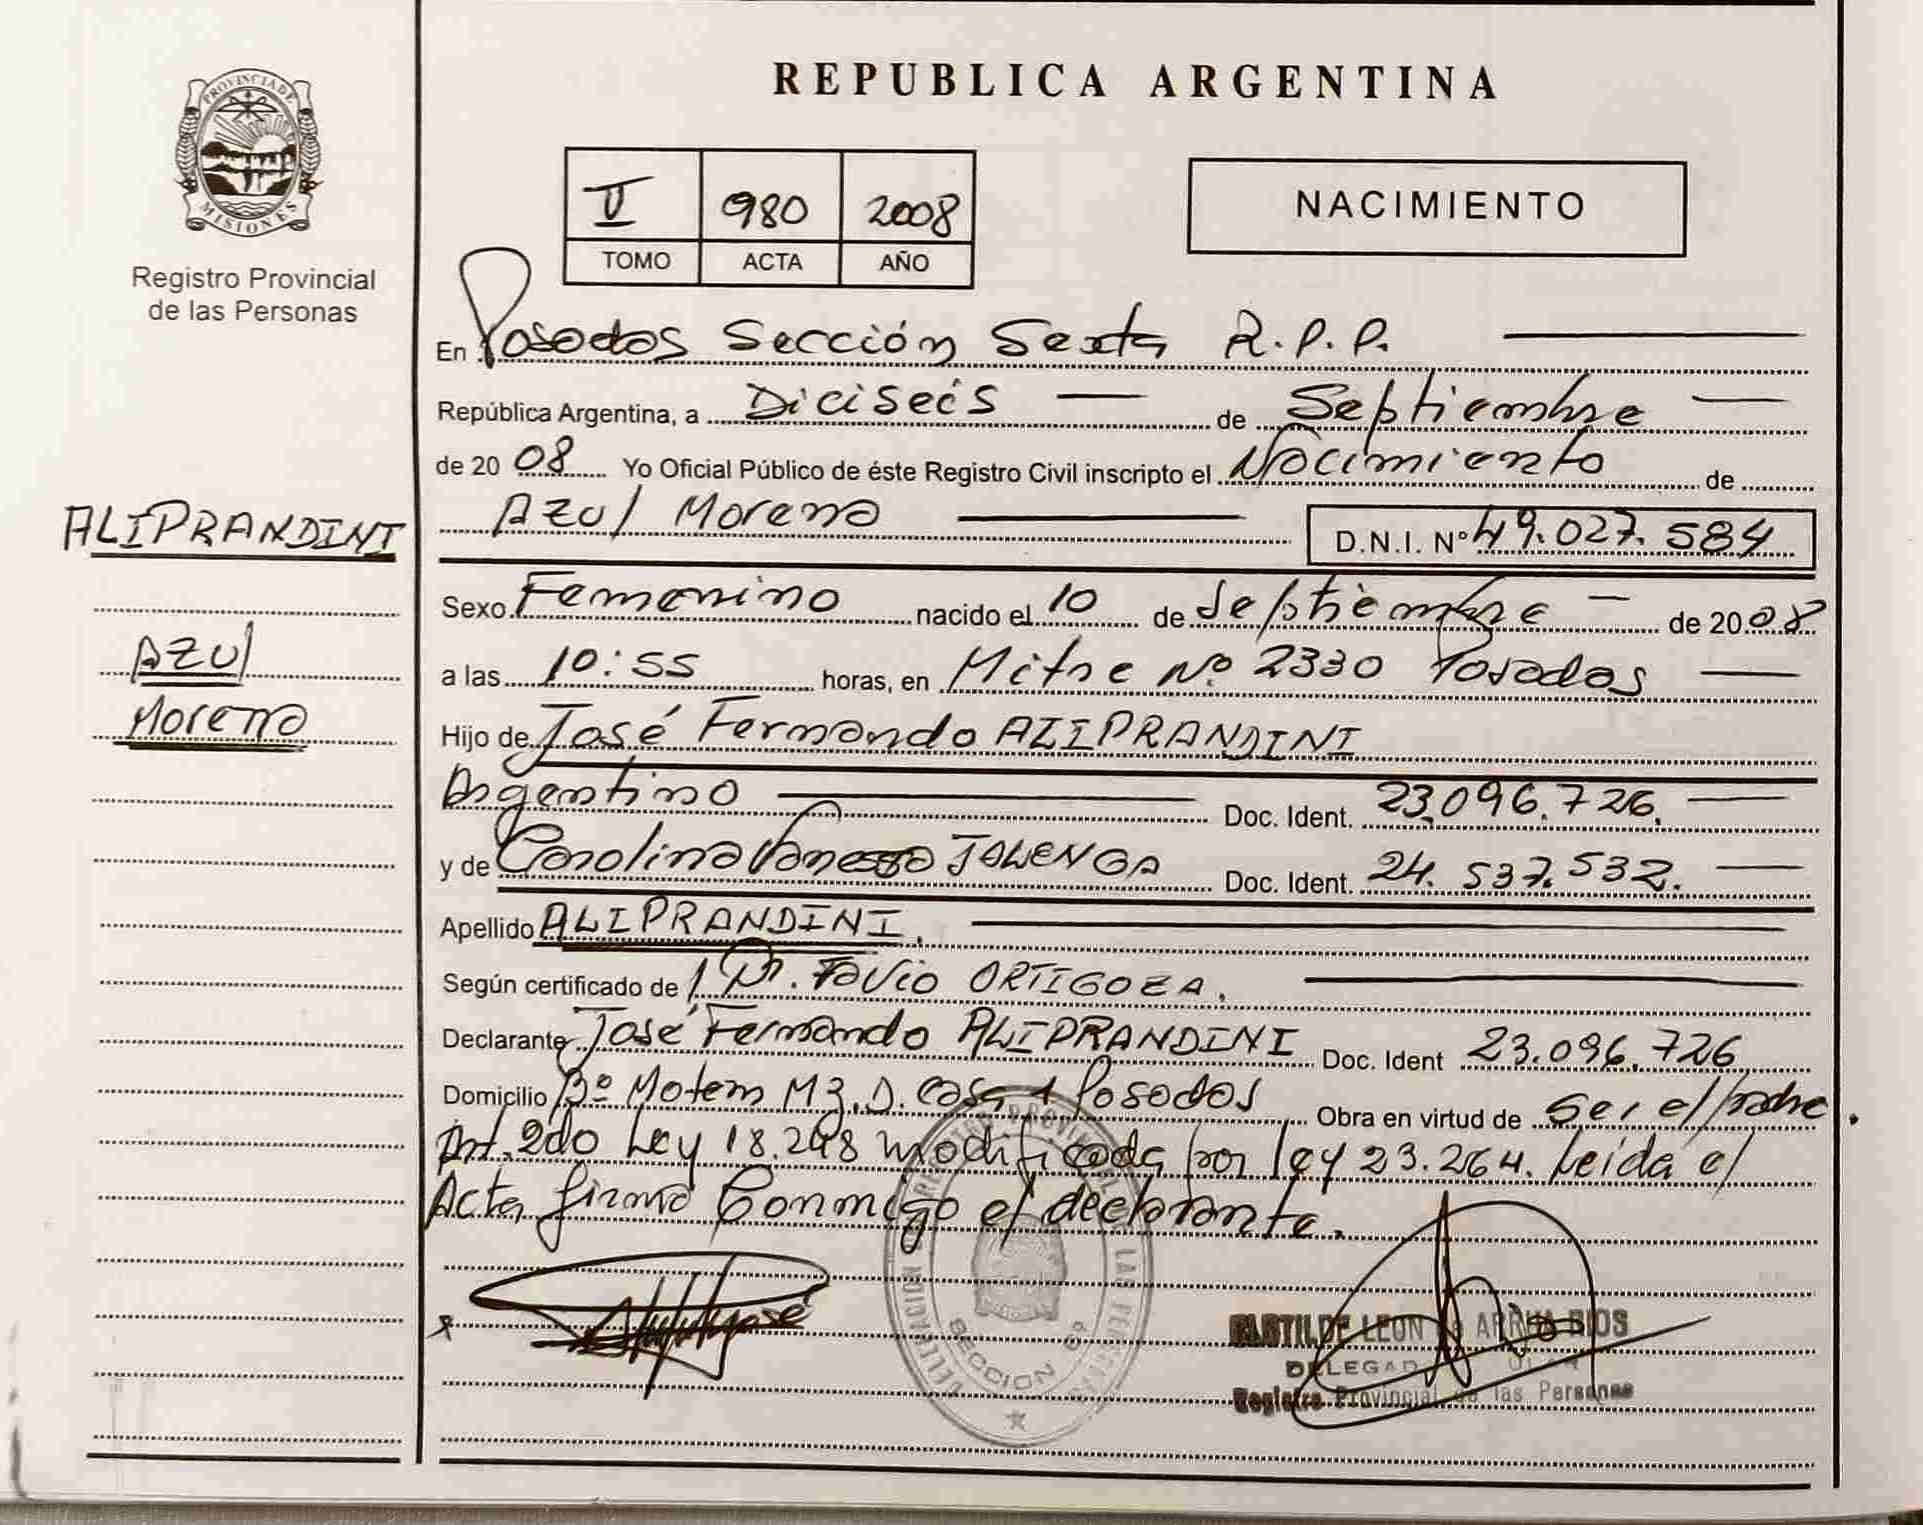 PROVINCIA DE
MISIONES
Registro Provincial
de las Personas
ALIPRANDINI
Azul
Morena
REPUBLICA ARGENTINA
II 980 2008
TOMO ACTA AÑO
NACIMIENTO
En Posadas Sección Sexta R.P.P.
República Argentina, a Diciseís de Septiembre
de 2008 Yo Oficial Público de éste Registro Civil inscripto el Nacimiento de
Azul Morena D.N.I. Nº 49.027.584
Sexo Femenino nacido el 10 de Septiembre de 2008
a las 10:55 horas, en Mitre Nº 2330 Posadas
Hijo de José Fernando ALIPRANDINI
Argentino Doc. Ident. 23.096.726.
y de Carolina Vanessa Doc. Ident. 24.537.532.
Apellido ALIPRANDINI.
Según certificado de Dr. Favio ORTIGOZA.
Declarante José Fernando ALIPRANDINI Doc. Ident 23.096.726
Domicilio Bº Mz. D. Casa 1 Posadas Obra en virtud de Ser el padre.
Art. 2do Ley 18.248 modificada por ley 23.264. Leída el
Acta firma Conmigo el declarante.
SECCION 6ª
LEON ARRUA RIOS
Registro Provincial de las Personas